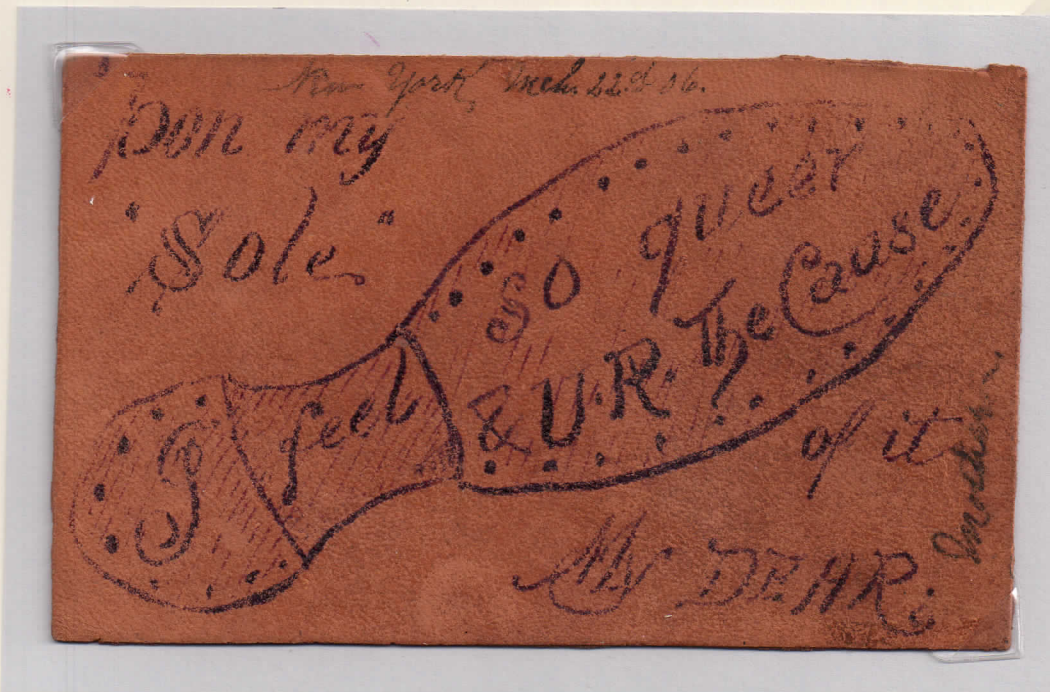 New York, Mch. 22d 06.
Pon my
"Sole"
I feel
So queer
& U.R. The Cause
of it
My DEAR.